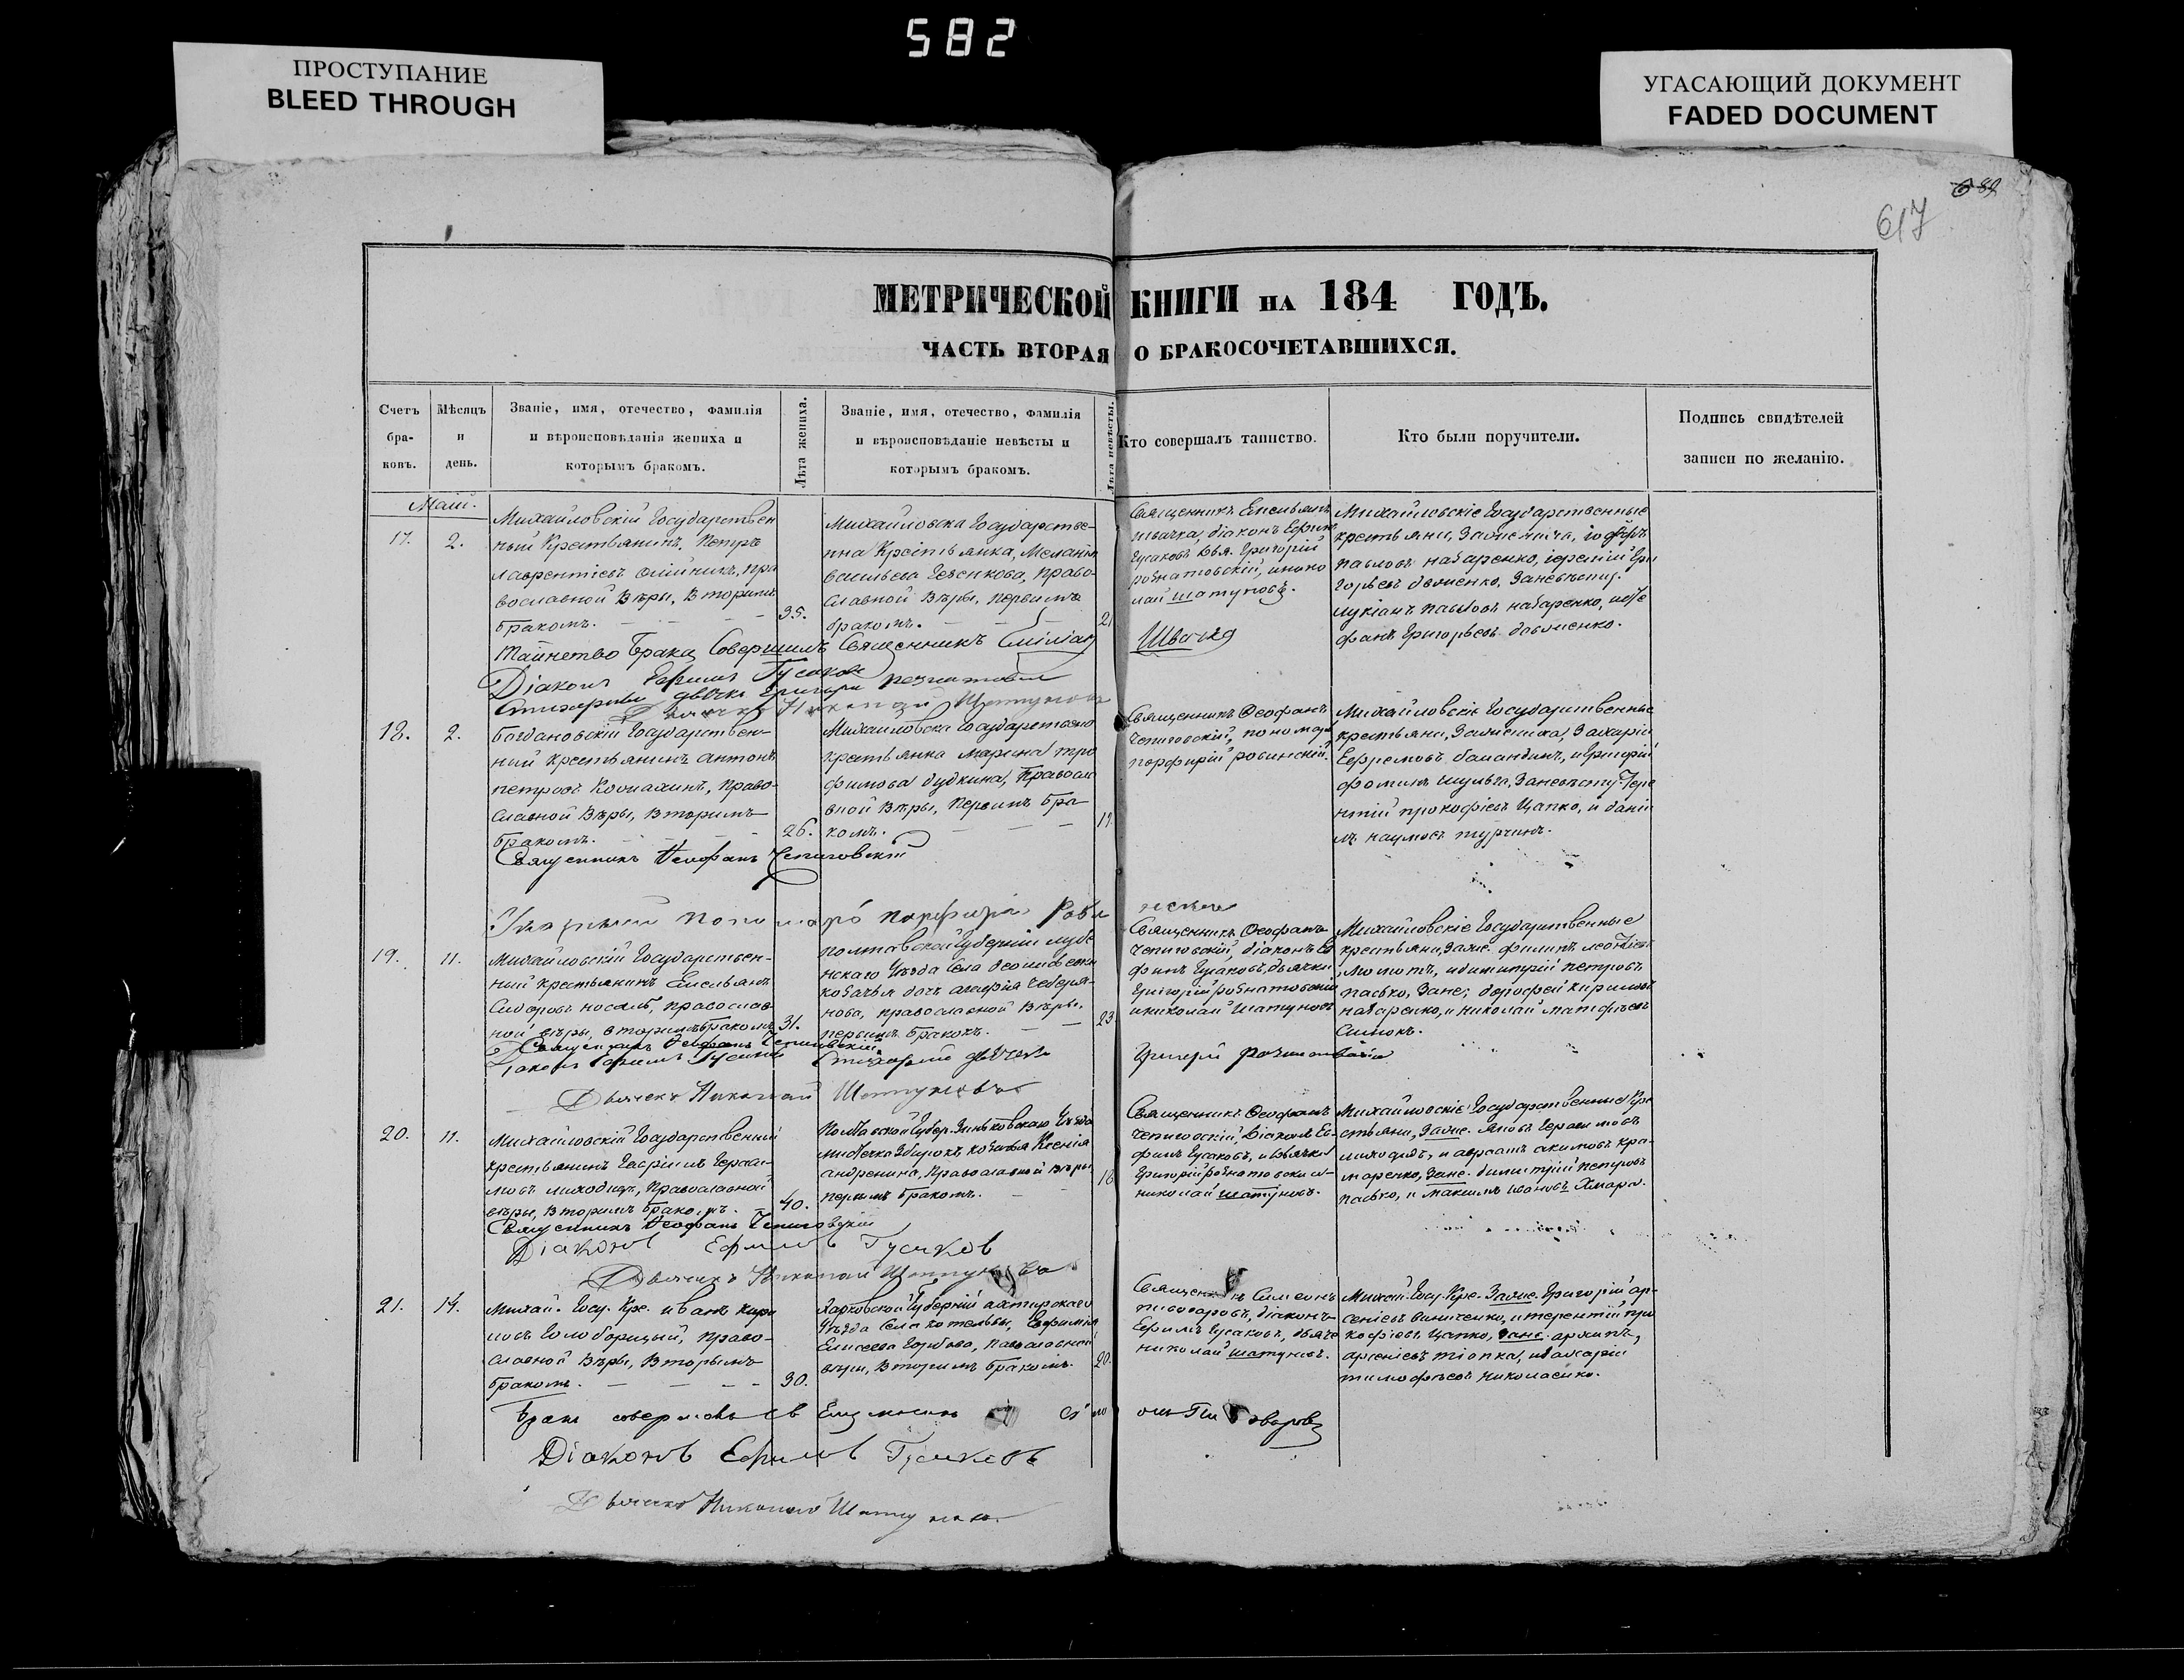 582
ПРОСТУПАНИЕ
BLEED THROUGH
УГАСАЮЩИЙ ДОКУМЕНТ
FADED DOCUMENT
689
617
МЕТРИЧЕСКОЙ КНИГИ НА 184 ГОДЪ.
ЧАСТЬ ВТОРАЯ О БРАКОСОЧЕТАВШИХСЯ.
Счетъ
бра-
ковъ.
Мѣсяцъ
и
день.
Званіе, имя, отечество, фамилія
и вѣроисповѣданія жениха и
которымъ бракомъ.
Лѣта жениха.
Званіе, имя, отечество, фамилія
и вѣроисповѣданіе невѣсты и
которымъ бракомъ.
Лѣта невѣсты.
Кто совершалъ таинство.
Кто были поручители.
Подпись свидѣтелей
записи по желанію.
Маій.
17.
2.
Михайловскій Государствен
ный Крестьянинъ, Петръ
Лаврентіевъ Олійникъ, пра
вославной Вѣры, Вторымъ
бракомъ.
35.
Михайловска Государстве-
нна Крестьянка, Меланія
васильева, право-
славной Вѣры, первымъ
бракомъ.
21
Священникъ Емельянъ
швачка, діаконъ Ефимъ
Гусаковъ, Григорій
рознатовскій, и нико
лай шатуновъ.
Михайловскіе Государственные
крестьяни, За
павловъ назаренко,
горьевъ, За невѣсту.
лукіанъ павловъ назаренко,
фанъ Григорьевъ.
Таинство Брака Совершилъ Священникъ Емиліанъ Швачка
Діаконъ Ефимъ Гусаковъ
дьячкъ Григорій рознатовскій
Дьячекъ Николай Шатуновъ
18.
2.
Богдановскій Государствен-
ный крестьянинъ антонъ
петровъ, право-
славной Вѣры, Вторымъ
бракомъ.
26.
Михайловска Государственна
крестьянка марина тро
фимова дудкина, Правосла
вной Вѣры, Первымъ бра
комъ.
19.
Священникъ Ѳеофанъ
Чепиговскій, пономарь
порфирій робинскій.
Михайловскіе Государственные
крестьяни, За жениха, Захарій
Ефремовъ баландинъ, и Григорій
фоминъ шульга, За невѣсту. Тере
нтій прокофіевъ Цапко, и даніи
лъ наумовъ турчинъ.
Священникъ Ѳеофанъ Чепиговскій
порфирій
19.
11.
Михайловскій Государствен-
ный крестьянинъ Емельянъ
Сидоровъ носаль, православ
ной вѣры, вторымъ бракомъ
31.
полтавской Губерніи лубе
нскаго Уѣзда Села
козачья дочь
нова, православной Вѣры,
первымъ бракомъ.
23.
Священникъ Ѳеофанъ
Чепиговскій, діаконъ Е
фимъ Гусаковъ, дьячки
Григорій рознатовскій
и николай Шатуновъ
Михайловскіе Государственные
крестьяни, За же. филипъ леонтіевъ
молотъ, и димитрій петровъ
пасько, За не; дорофей кириловъ
назаренко, и николай матфѣевъ
Священникъ Ѳеофанъ Чепиговскій
Діаконъ Ефимъ Гусаковъ
Стихарный дьячекъ Григорій Рознатовскій
Дьячекъ Николай Шатуновъ
20.
11.
Михайловскій Государственный
крестьянинъ Гавріилъ Гераси-
мовъ лиходидъ, Православной
вѣры, Вторымъ бракомъ.
40.
Полтавской Губер. Зинѣковскаго Уѣзда
мистечка, козачья Ксенія
андреина, Православной Вѣры
первымъ бракомъ.
18
Священникъ Ѳеофанъ
Чепиговскій, Діаконъ Е-
фимъ Гусаковъ, и дьячки
Григорій рознатовскій и
николай шатуновъ.
Михайловскіе Государственные Кре
стьяни, За же. яковъ Герасимовъ
лиходидъ, и авраамъ акимовъ кра-
маренко, За не. димитрій петровъ
пасько, и максимъ ивановъ Хмара.
Священникъ Ѳеофанъ Чепиговскій
Діаконъ Ефимовъ Гусаковъ
Дьячекъ Николай Шатуновъ
21.
14.
Михай. Госу. Кре. иванъ кири
ловъ Голобородый, право-
славной Вѣры, Вторымъ
бракомъ.
30.
Харковской Губерніи ахтирскаго
Уѣзда Села котельвы, Евфимія
Елисеева Горбова, Православной
вѣры, Вторымъ бракомъ.
20.
Священникъ Симеонъ
пивоваровъ, діаконъ
Ефимъ Гусаковъ, дьячо
николай шатуновъ.
Михай. Госу. Кре. За же. Григорій ар-
сеніевъ виниченко, и терентій про
кофіевъ Цапко, За не. архипъ
арсеніевъ тіопка, и захарій
тимофѣевъ николаенко.
Діаконовъ Ефимовъ Гусаковъ
Дьячекъ Николай Шатуновъ